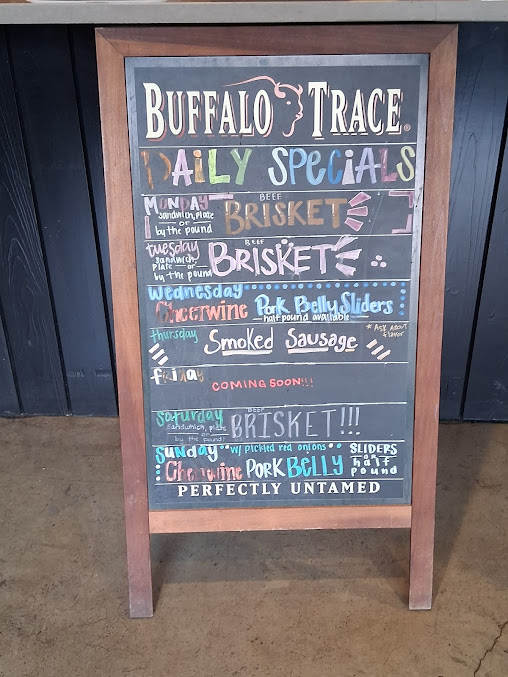 BUFFALO TRACE®
DAILY SPECIALS
MONDAY
sandwhich, plate
or
by the pound
BEEF
BRISKET
tuesday
sandwhich,
plate or
by the pound
BEEF
BRISKET
wednesday
Cheerwine Pork Belly Sliders
half pound available
thursday
Smoked Sausage
* Ask About
flavor
friday
COMING SOON!!!
Saturday
sandwhich, plate
or
by the pound!
BEEF
BRISKET!!!
SUNDAY w/ pickled red onions
Cheerwine PORK BELLY
SLIDERS
or
half
pound
PERFECTLY UNTAMED